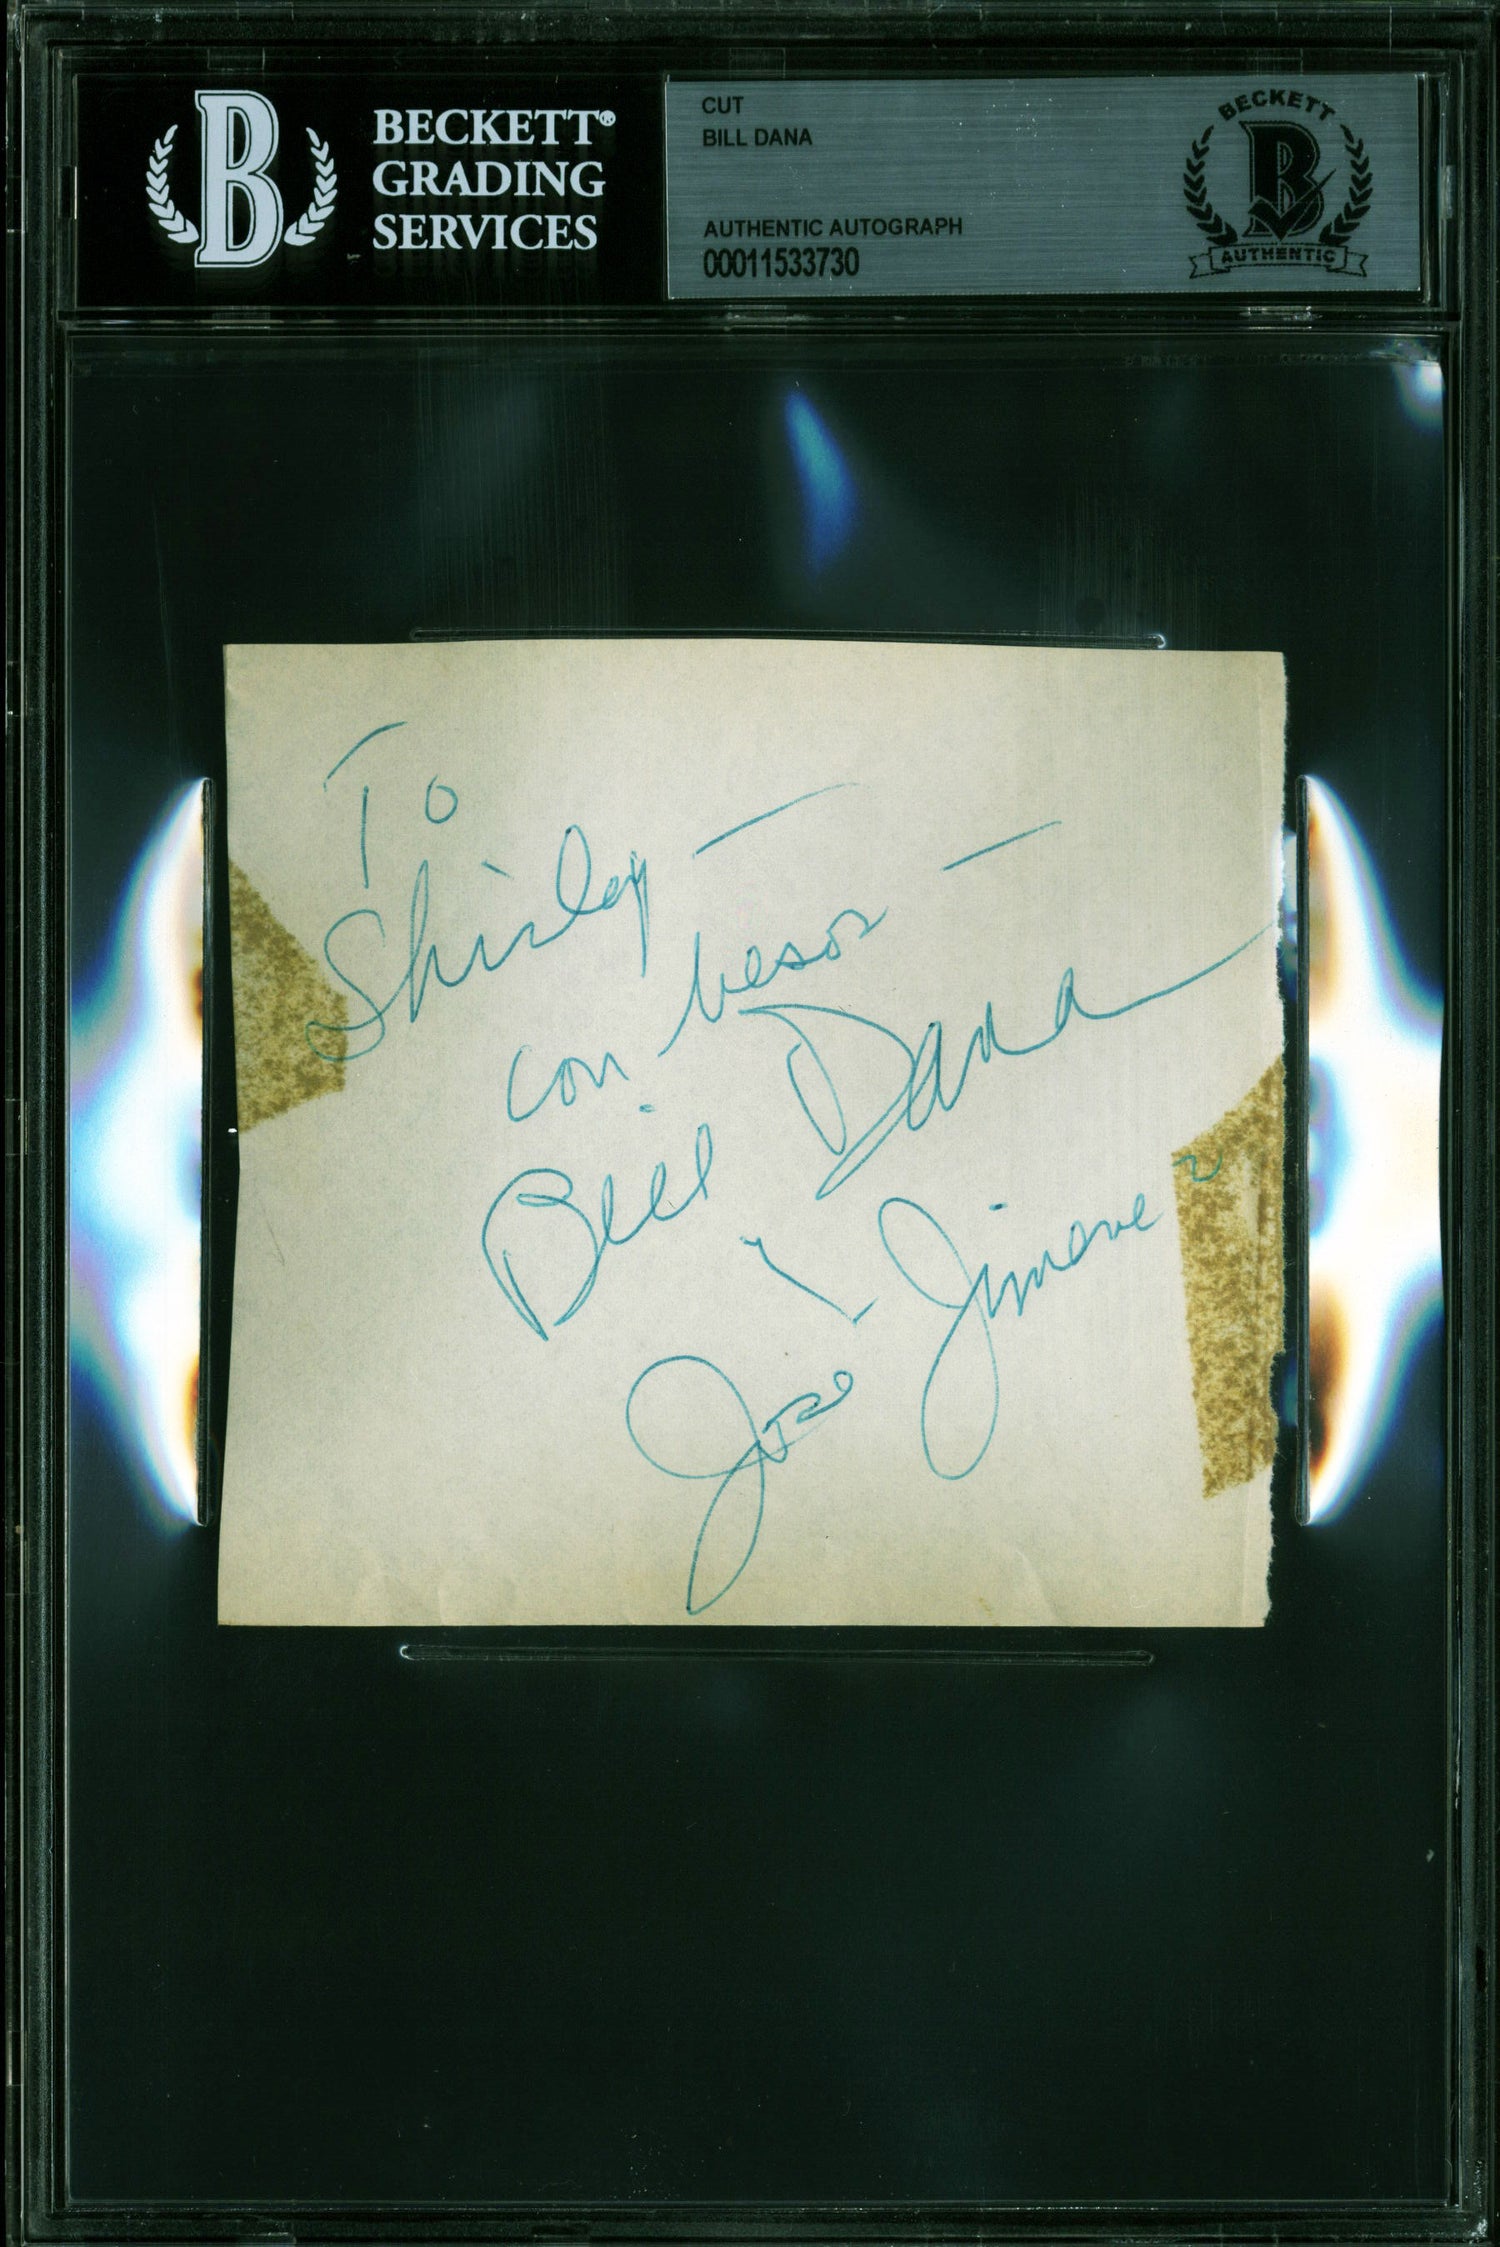 BECKETT®
GRADING
SERVICES
CUT
BILL DANA
AUTHENTIC AUTOGRAPH
00011533730
BECKETT
B
AUTHENTIC
B
To
Shirley —
con besos —
Bill Dana
y
José Jimenez